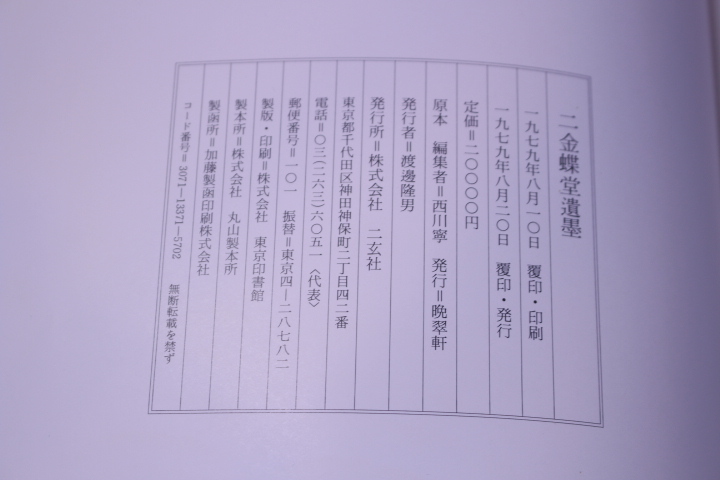 二金蝶堂遺墨
一九七九年八月一〇日　覆印・印刷
一九七九年八月二〇日　覆印・発行
定価＝二〇〇〇〇円
原本　編集者＝西川寧　発行＝晩翠軒
発行者＝渡邊隆男
発行所＝株式会社　二玄社
東京都千代田区神田神保町二丁目四二番
電話＝〇三(二六三)六〇五一〈代表〉
郵便番号＝一〇一　振替＝東京四―二八七八二
製版・印刷＝株式会社　東京印書館
製本所＝株式会社　丸山製本所
製函所＝加藤製函印刷株式会社
コード番号＝3071―13371―5702　無断転載を禁ず